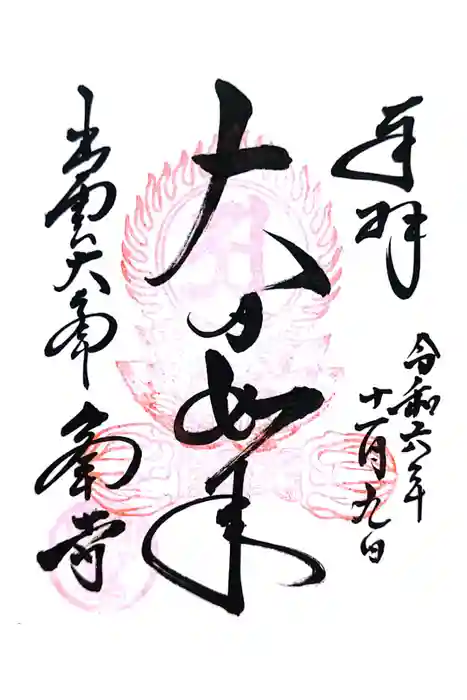 奉拝
令和六年
十一月九日
大日如来
出雲大峯 峯寺